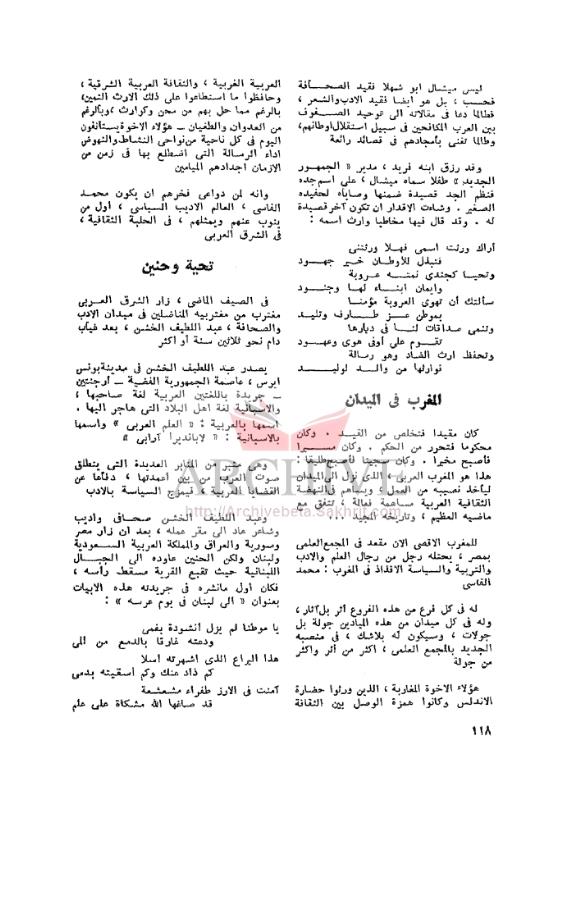 ليس ميشال ابو شهلا فقيد الصحـافة
فحسب ، بل هو ايضا فقيد الادب والشعر ،
فطالما دعا فى مقالاته الى توحيد الصـفوف
بين العرب المكافحين فى سبيل استقلال اوطانهم،
وطالما تغنى بأمجادهم فى قصائد رائعة
وقد رزق ابنه فريد ، مدير « الجمهور
الجديد » طفلا سماه ميشال ، على اسم جده
فنظم الجد قصيدة ضمنها وصاياه لحفيده
الصغير . وشاءت الاقدار ان تكون آخر قصيدة
له . وقد قال فيها مخاطبا وارث اسمه :
أراك ورثت اسمى فهـلا ورثتنى
فتبذل للأوطـان خـير جهـود
وتحيـا كجندى نمتـه عـروبة
وايمان ابنـاء لهـا وجنـود
سألتك أن تهوى العروبة مؤمنـا
بموطن عـز طـارف وتليـد
وتنمى صداقات لنـا فى ديارها
تقـوم على أوفى هوى وعهـود
وتحفظ ارث الضاد وهو رسالة
توارثها من والـد لوليـد
المغرب فى الميدان
كان مقيدا فتخلص من القيـد . وكان
محكوما فتحرر من الحكم . وكان مسـيرا
فأصبح مخيرا . وكان سجينا فأصبح طليقا :
هذا هو المغرب العربى ، الذى نزل الى الميدان
ليأخذ نصيبه من العمل ، ويساهم فى النهضة
الثقافية العربية مساهمة فعالة ، تتفق مع
ماضيه العظيم ، وتاريخه المجيد ....
للمغرب الاقصى الآن مقعد فى المجمع العلمى
بمصر ، يحتله رجل من رجال العلم والادب
والتربية والسياسة الافذاذ فى المغرب : محمد
الفاسى
له فى كل فرع من هذه الفروع أثر بل آثار ،
وله فى كل ميدان من هذه الميادين جولة بل
جولات ، وسيكون له بلاشك ، فى منصبه
الجديد بالمجمع العلمى ، أكثر من أثر وأكثر
من جولة
هؤلاء الاخوة المغاربة ، الذين ورثوا حضارة
الاندلس وكانوا همزة الوصل بين الثقافة
العربية الغربية ، والثقافة العربية الشرقية ،
وحافظوا ما استطاعوا على ذلك الارث الثمين،
بالرغم مما حل بهم من محن وكوارث ،وبالرغم
من العدوان والطغيان – هؤلاء الاخوة يستأنفون
اليوم فى كل ناحية من نواحى النشاط والنهوض
أداء الرسالة التى اضطلع بها فى زمن من
الازمان أجدادهم الميامين
وانه لمن دواعى فخرهم ان يكون محمـد
الفاسى ، العالم الاديب السياسى ، أول من
ينوب عنهم ويمثلهم ، فى الحلبة الثقافية ،
فى الشرق العربى
تحية وحنين
فى الصيف الماضى ، زار الشرق العـربى
مغترب من مغتربيه المناضلين فى ميدان الادب
والصحافة ، عبد اللطيف الخشن ، بعد غياب
دام نحو ثلاثين سنة أو أكثر
يصدر عبد اللطيف الخشن فى مدينة بونس
ايرس ، عاصمة الجمهورية الفضية – أرجنتين
– جريدة باللغتين العربية لغة صاحبها ،
والاسبانية لغة أهل البلاد التى هاجر اليها .
اسمها بالعربية : « العلم العربى » واسمها
بالاسبانية : « لابانديرا آرابى »
وهى منبر من المنابر العديدة التى ينطلق
صوت العرب من بين أعمدتها ، دفاعا عن
القضايا العربية ، فيمزج السياسة بالادب
وعبد اللطيف الخشن صحـافى وأديب
وشاعر عاد الى مقر عمله ، بعد أن زار مصر
وسورية والعراق والمملكة العربية السـعودية
ولبنان ولكن الحنين عاوده الى الجبـال
اللبنانية حيث تقبع القرية مسـقط رأسه ،
فكان أول مانشره فى جريدته هذه الابيات
بعنوان « الى لبنان فى يوم عرسه » :
يا موطنا لم يزل أنشودة بفمى
ودعته غارقا بالدمع من ألمى
هذا اليراع الذى أشهرته أسلا
كم ذاد عنك وكم أسقيته بدمى
آمنت فى الارز طغراء مشعشعة
قد صاغها الله مشكاة على علم
١١٨
ARCHIVE
http://Archivebeta.Sakhrit.com